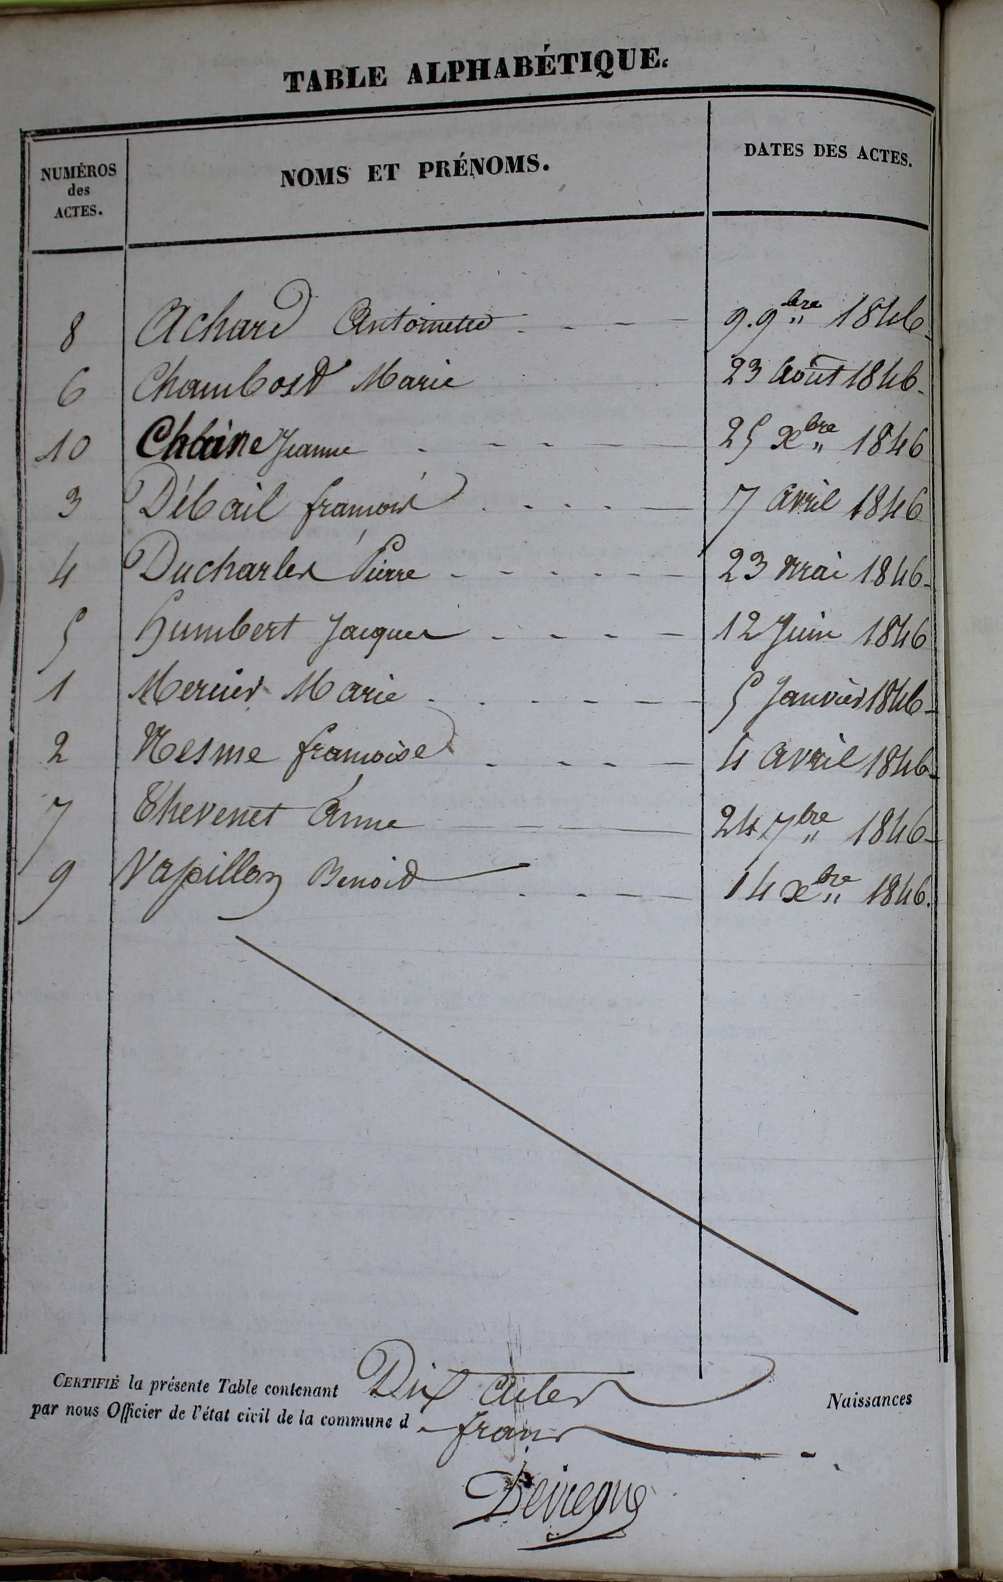 TABLE ALPHABÉTIQUE.
NUMÉROS des ACTES. NOMS ET PRÉNOMS. DATES DES ACTES.
8 Achard Antoinette 9. 9bre 1846
6 Chambost Marie 23 Août 1846
10 Chaine Jeanne 25 Xbre 1846
3 Débail françois 7 avril 1846
4 Ducharles Pierre 23 mai 1846
5 Humbert Jacques 12 Juin 1846
1 Mercier Marie 5 Janvier 1846
2 Nesme françoise 4 avril 1846
7 Thevenet Anne 24 7bre 1846
9 Vapillon Benoid 14 Xbre 1846.
CERTIFIÉ la présente Table contenant Dix actes Naissances
par nous Officier de l'état civil de la commune d